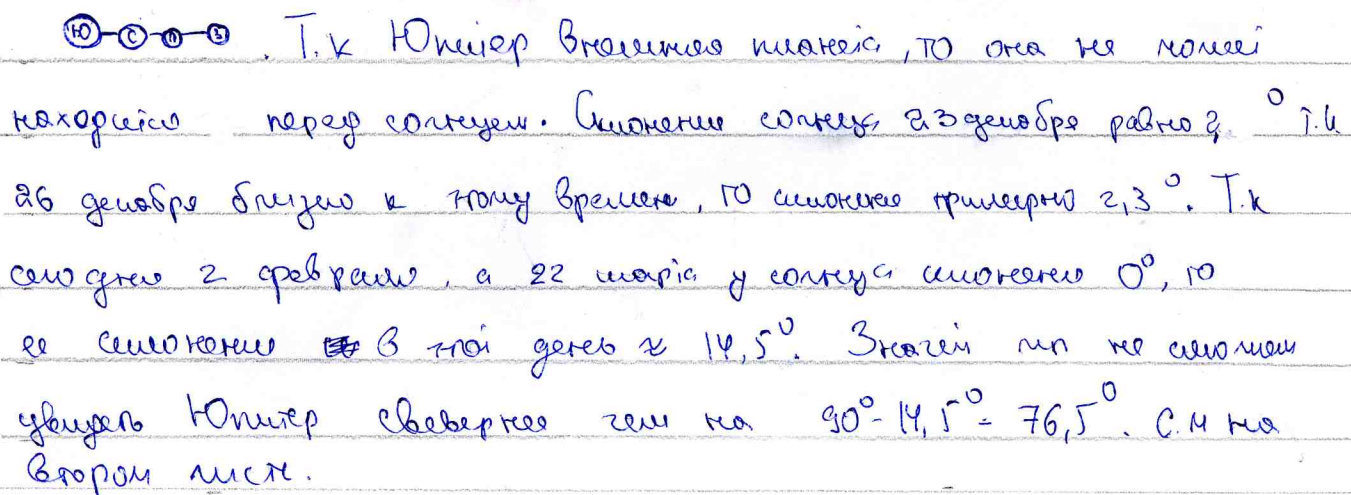 Ю С П З . Т.к Юпитер внешняя планета, то она не может
находится перед солнцем. Склонение солнца 23 декабря равно 2, ° т.к.
26 декабря близко к этому времени, то склонение примерно 2,3°. Т.к
сегодня 2 февраля, а 22 марта у солнца склонение 0°, то
ее склонение в этот день ≈ 14,5°. Значит мы не сможем
увидеть Юпитер севернее чем на 90°-14,5°= 76,5°. С.м на
втором листе.